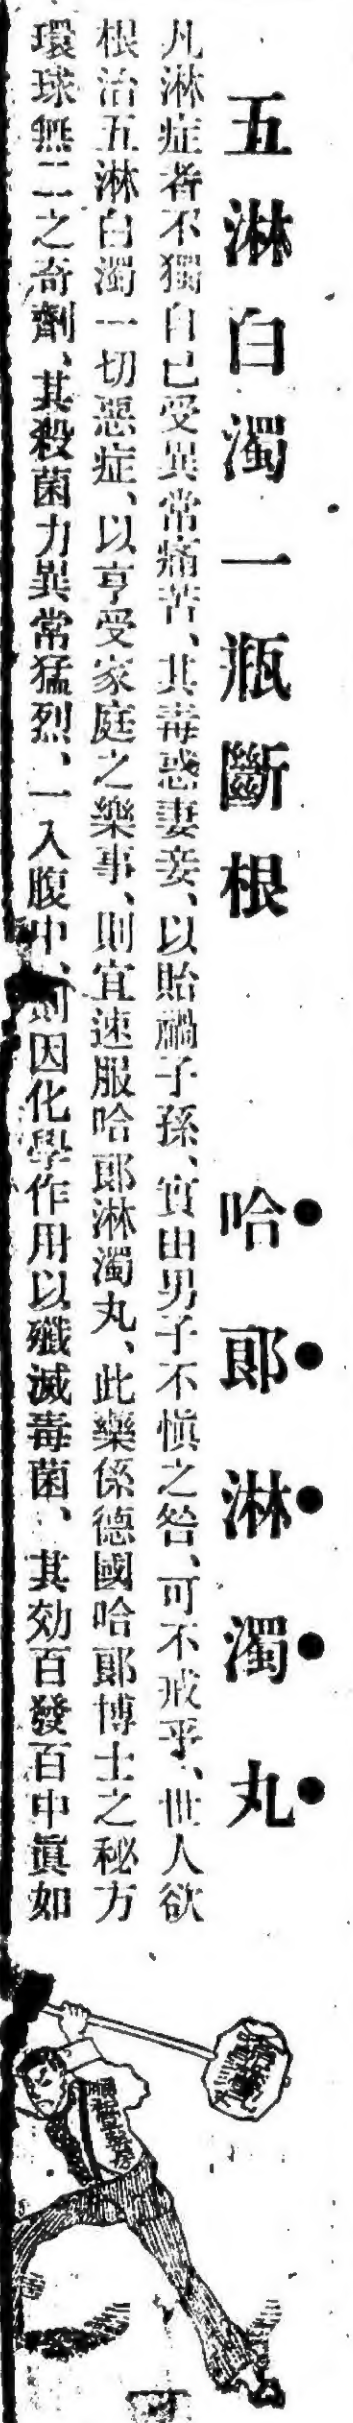 五淋白濁一瓶斷根 哈郎淋濁丸
凡淋症者不獨自已受異常痛苦、其毒惑妻妾、以貽禍子孫、實由男子不慎之咎、可不戒乎、世人欲
根治五淋白濁一切惡症、以亨受家庭之樂事、則宜速服哈郎淋濁丸、此藥係德國哈郎博士之秘方
環球無二之奇劑、其殺菌力異常猛烈、一入腹中、則因化學作用以殲滅毒菌、其効百發百中眞如